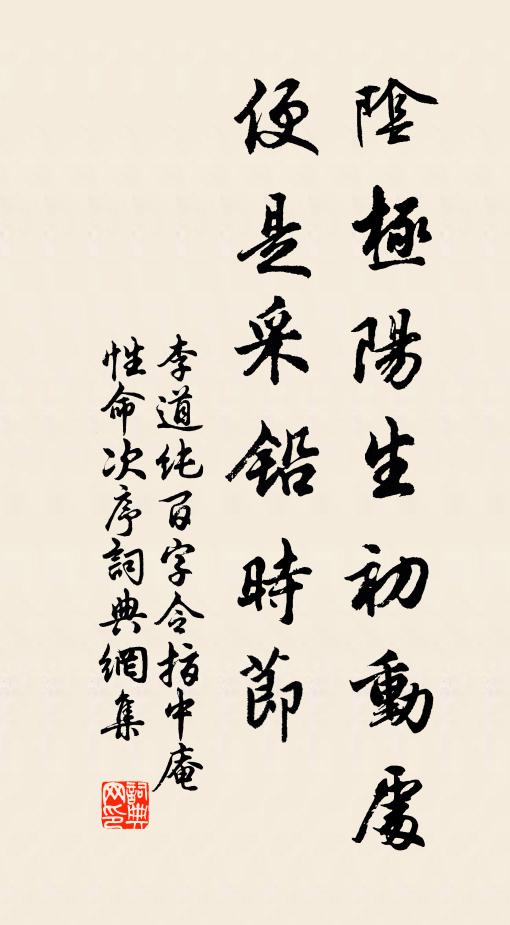 陰極陽生初動處
便是采鉛時節
李道純百字令指中庵
性命次序詞典網集
詞典
网印